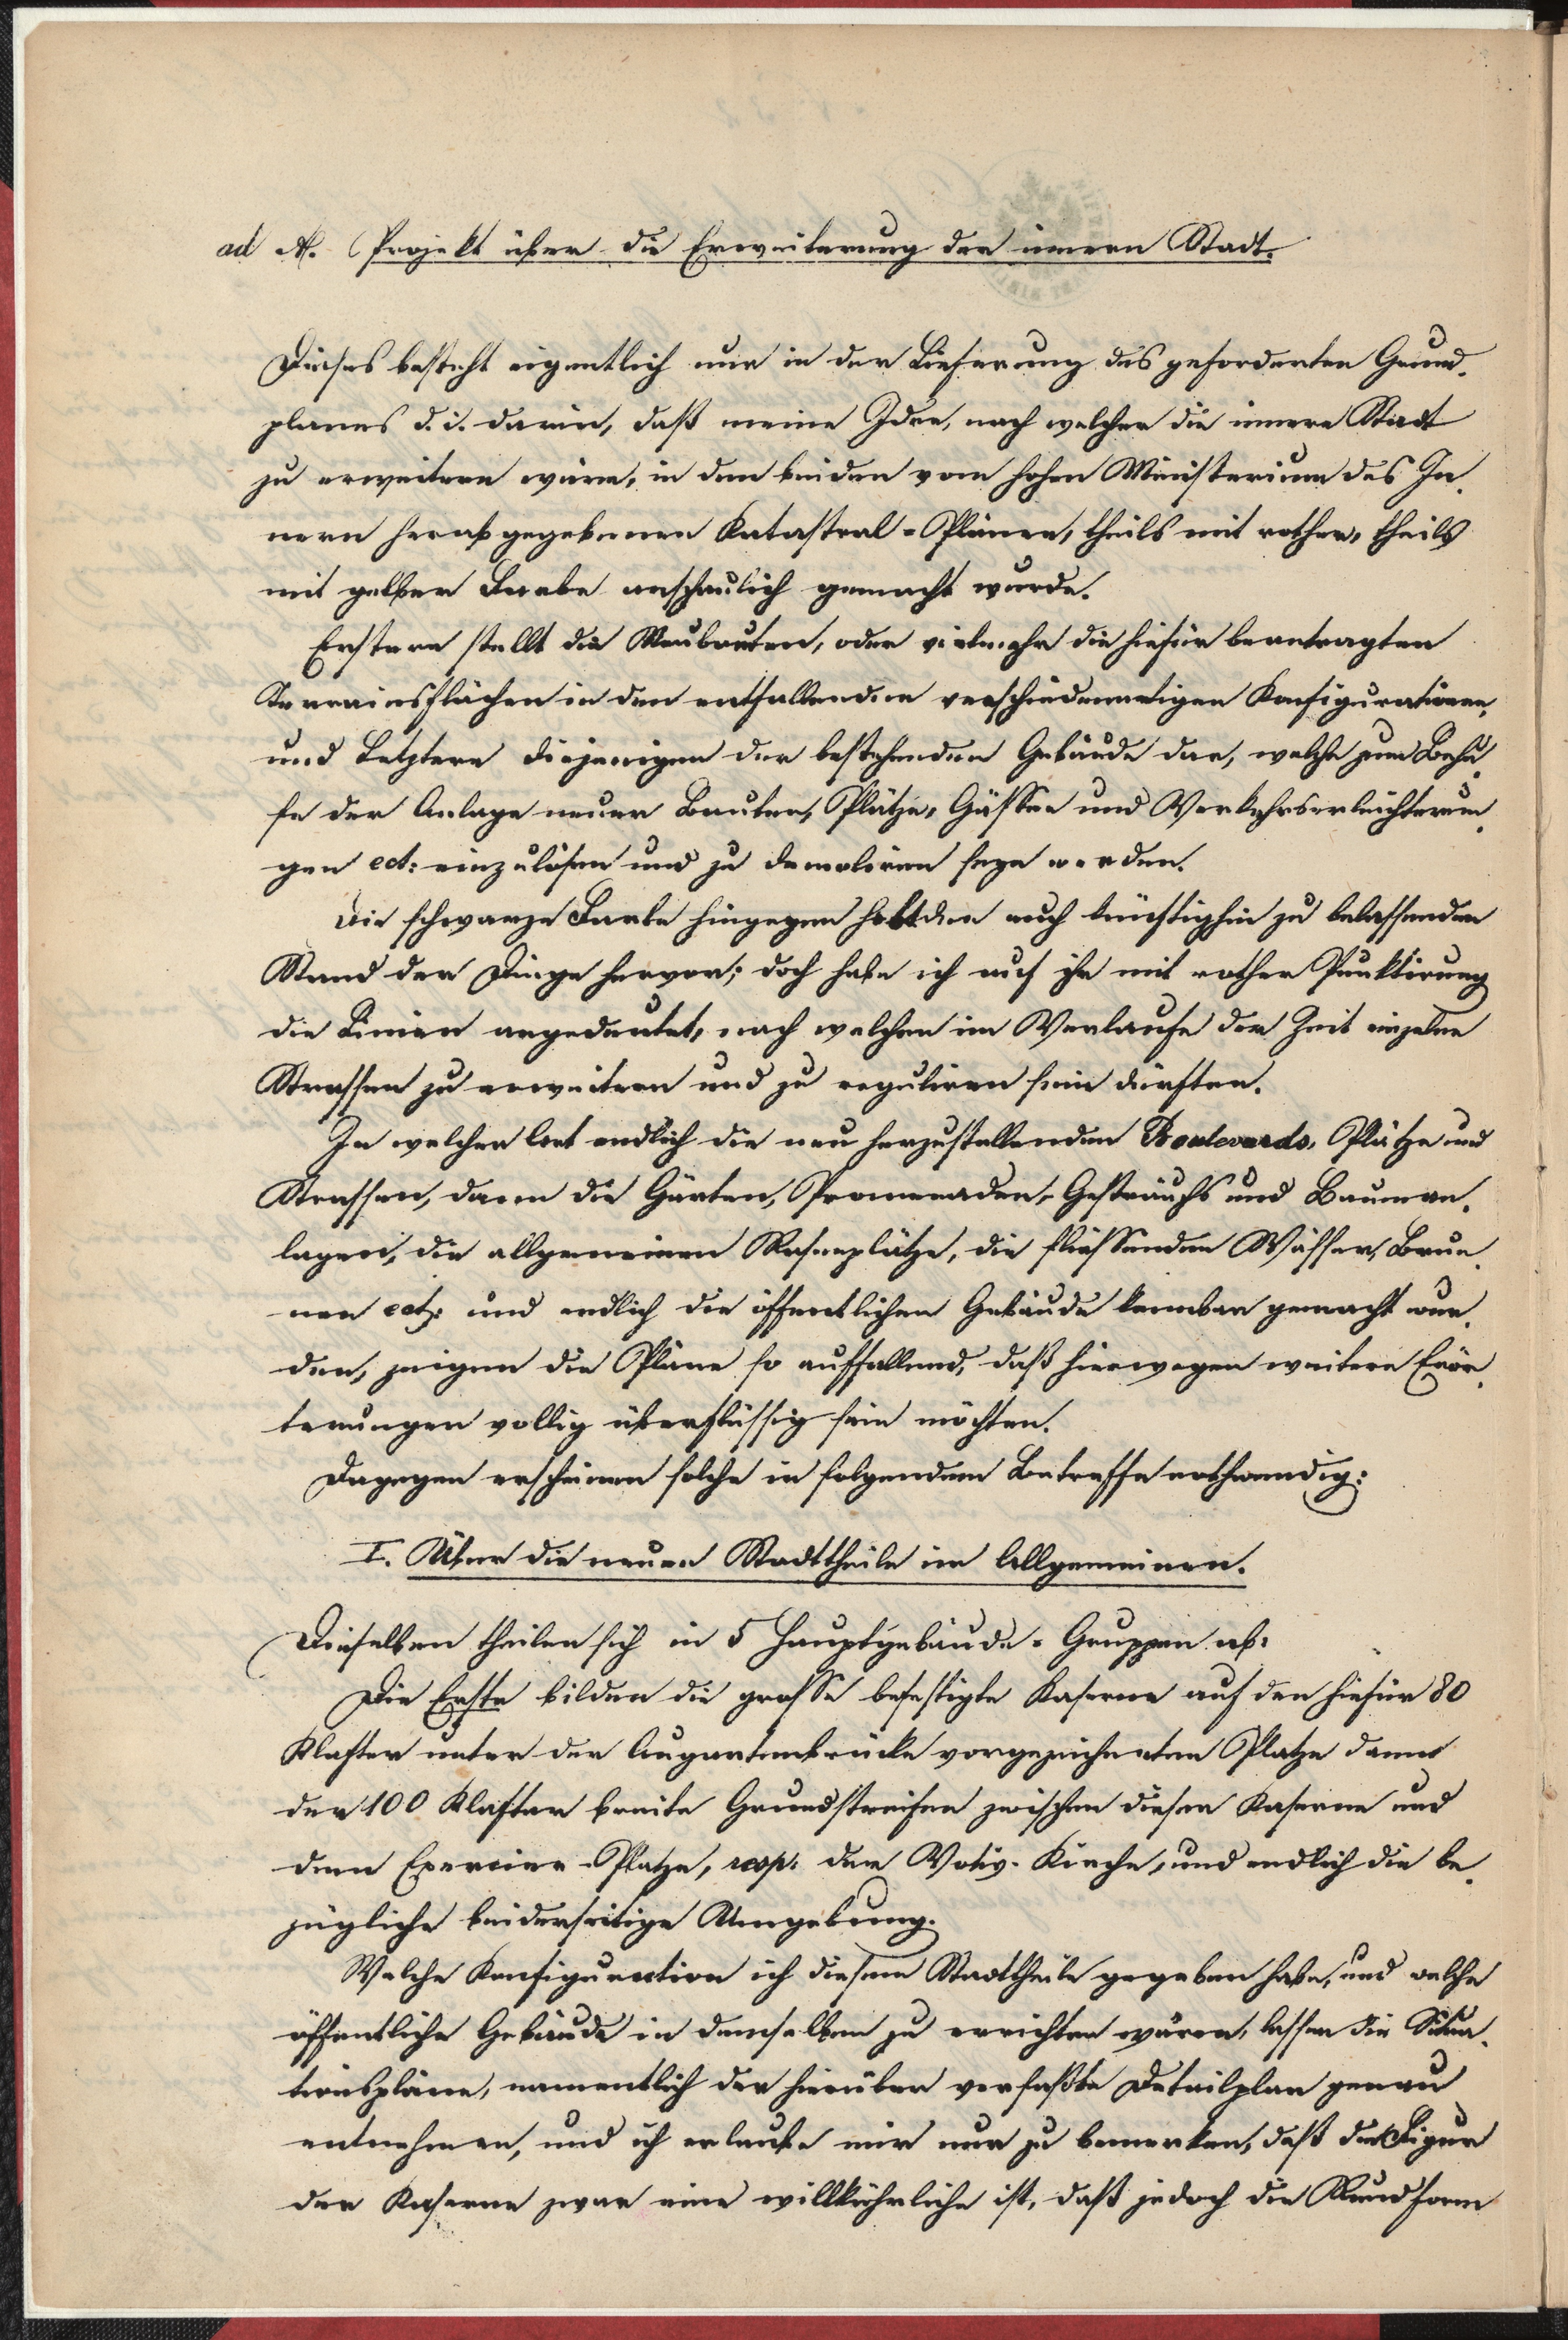 ad A. Projekt über die Erweiterung der innern Stadt.
Dieses besteht eigentlich nur in der Lieferung des geforderten Grund-
planes d. i. darin, daß meine Idee, nach welcher die innere Stadt
zu erweitern wäre, in den beiden vom hohen Ministerium des In-
nern herabgegebenen Katastral-Plänen, theils mit rother, theils
mit gelber Farbe anschaulich gemacht wurde.
Erstere stellt die Neubauten, oder vielmehr die hiefür beantragten
Terrainsflächen in den entfallenden verschiedenartigen Konfigurationen,
und Letztere diejenigen der bestehenden Gebäude dar, welche zum Behu-
fe der Anlage neuer Bauten, Plätze, Gässen und Verkehrserleichterun-
gen ect: einzulösen und zu demoliren seyn werden.
Die schwarze Farbe hingegen hebt den auch künftighin zu belassenden
Stand der Dinge hervor; doch habe ich auf ihr mit rother Punktirung
die Linien angedeutet, nach welchen im Verlaufe der Zeit einzelne
Strassen zu erweitern und zu reguliren sein dürften.
In welcher Art endlich die neu herzustellenden Boulevards, Plätze und
Strassen, dann die Gärten, Promenaden, Gesträuchs und Bauman-
lagen, die allgemeinen Rasenplätze, die fliessenden Wässer, Brun-
nen ect: und endlich die öffentlichen Gebäude kennbar gemacht wur-
den, zeigen die Pläne so auffallend, daß hierwegen weitere Erör-
terungen vollig überflüssig sein möchten.
Dagegen erscheinen solche in folgendem Betreffe nothwendig:
I. Über die neuen Stadttheile im Allgemeinen.
Dieselben theilen sich in 5 Hauptgebäude-Gruppen ab:
Die Erste bilden die grosse befestigte Kaserne auf den hiefür 80
Klafter unter der Augartenbrücke vorgezeichneten Platze dann
der 100 Klafter breite Grundstreifen zwischen dieser Kaserne und
dem Exercier-Platze, resp. der Votiv-Kirche, und endlich die be-
zügliche beiderseitige Umgebung.
Welche Konfiguration ich diesem Stadttheile gegeben habe, und welche
öffentliche Gebäude in demselben zu errichten wären, lassen die Situa-
tionspläne, namentlich der hierüber verfaßte Detailplan genau
entnehmen, und ich erlaube mir nur zu bemerken, daß die Figur
der Kaserne zwar eine willkührliche ist, daß jedoch die Rundform